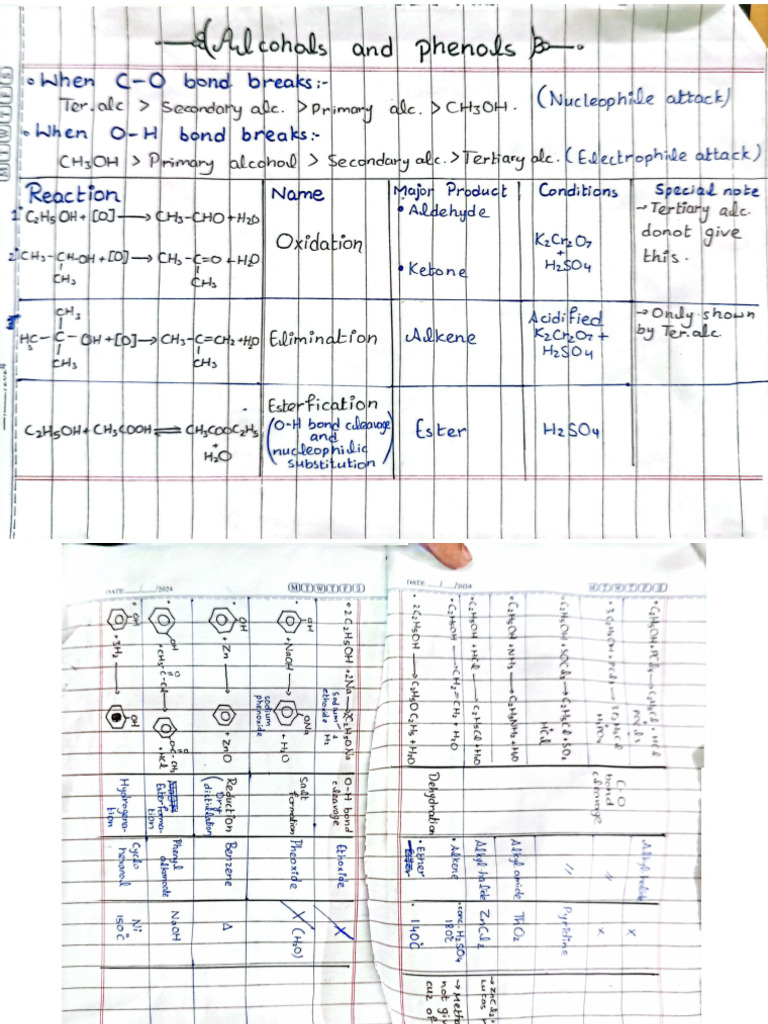 Alcohols and phenols
• When C-O bond breaks:-
Ter.alc > Secondary alc. > Primary alc. > CH3OH. (Nucleophile attack)
• When O-H bond breaks:-
CH3OH > Primary alcohol > Secondary alc. > Tertiary alc. (Electrophile attack)
Reaction Name Major Product Conditions Special note
1° C2H5OH + [O] ⟶ CH3-CHO + H2O
2° CH3-CH-OH + [O] ⟶ CH3-C=O + H2O
CH3 CH3
Oxidation
• Aldehyde
• Ketone
K2Cr2O7
+
H2SO4
→ Tertiary alc.
donot give
this.
CH3
H3C-C-OH + [O] ⟶ CH3-C=CH2 + H2O
CH3 CH3
Elimination
Alkene
Acidified
K2Cr2O7 +
H2SO4
→ Only shown
by Ter.alc.
C2H5OH + CH3COOH ⇌ CH3COOC2H5
+
H2O
Esterfication
(O-H bond cleavage
and
nucleophilic
substitution)
Ester
H2SO4
DATE / /2024
M T W T F S
• 2C2H5OH + 2Na ⟶ 2C2H5ONa
Sodium
ethoxide + H2
O-H bond
cleavage
Ethoxide
X
• OH + NaOH ⟶ ONa + H2O
sodium
phenoxide
Salt
formation
Pheoxide
X (H2O)
• OH + Zn ⟶ + ZnO
Reduction
(Dry
distillation)
Benzene
Δ
• OH + CH3-C-Cl ⟶ O-C-CH3 + HCl
O O
Esterforma-
tion
Phenyl
alkanoate
NaOH
• OH + 3H2 ⟶ OH
Hydrogena-
tion
Cyclo
hexanol
Ni
150°C
DATE / /2024
M T W T F S
• C2H5OH + PCl5 ⟶ C2H5Cl + HCl
Alkyl halide
X
C-O
bond
cleavage
〃
X
• C2H5OH + SOCl2 ⟶ C2H5Cl + SO2
HCl
〃
Pyridine
• C2H5OH + NH3 ⟶ C2H5NH2 + H2O
Alkyl amide
ThO2
• C2H5OH + HCl ⟶ C2H5Cl + H2O
Alkyl halide
ZnCl2
• C2H5OH ⟶ CH2=CH2 + H2O
Dehydration
• Alkene
• conc. H2SO4
180°C
• 2C2H5OH ⟶ C2H5OC2H5 + H2O
• Ether
140°C